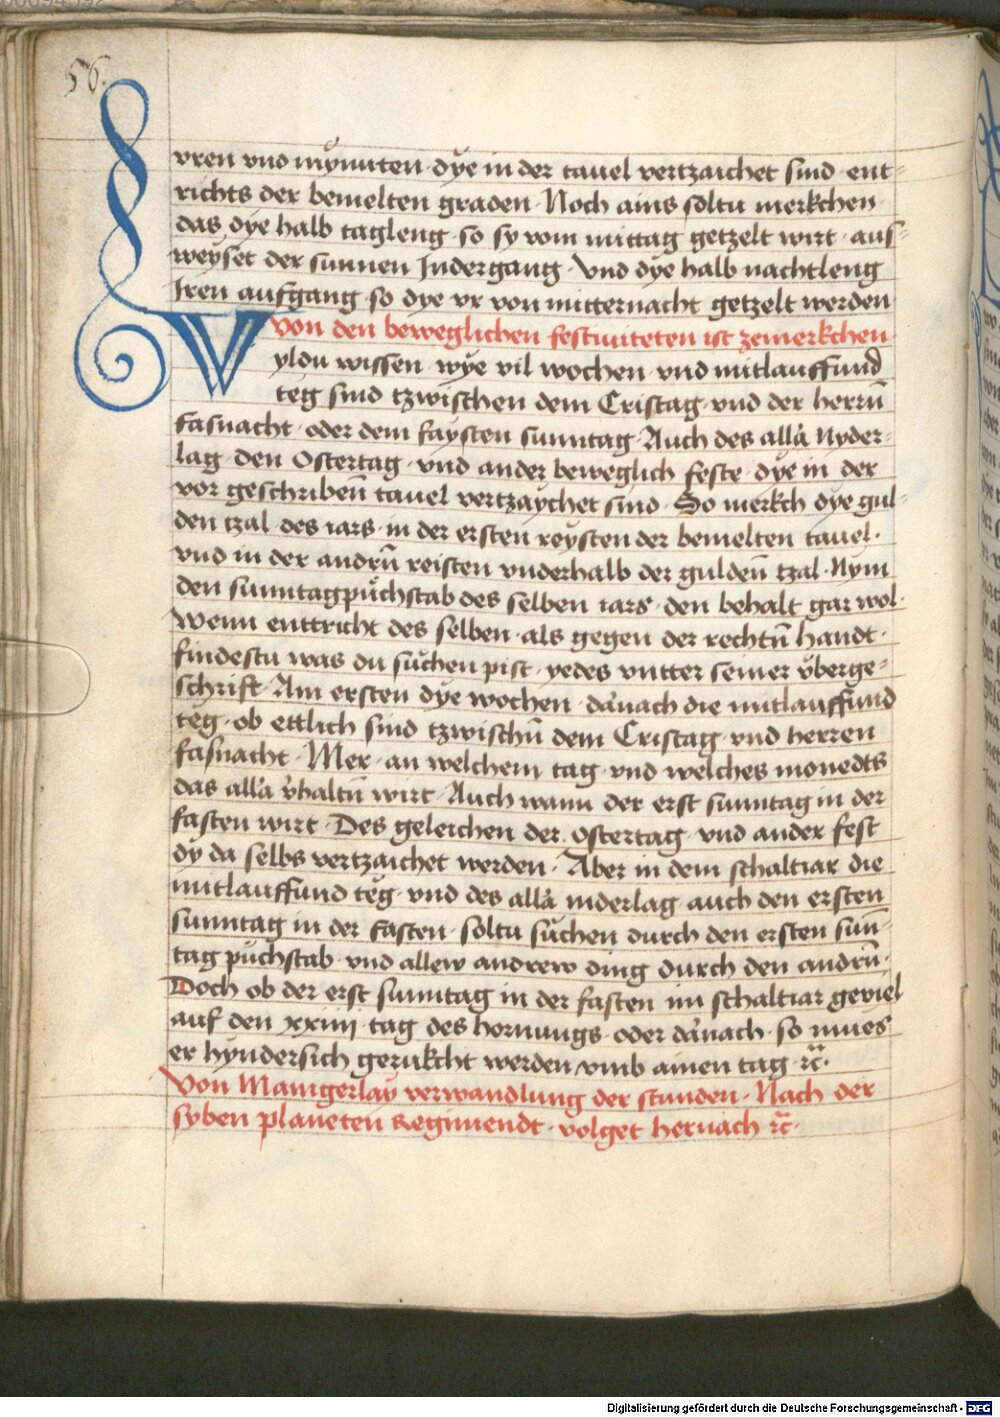 56.
vren vnd mynnten · dye in der tauel vertzaichet sind · ent=
richts der bemelten graden · Noch ains soltu merkchen ·
das dye halb tagleng · so sy vom mittag getzelt wirt · aus=
weyset der sunnen Indergang · Vnd dye halb nachtleng
Iren aufgang · so dye vr von mitternacht getzelt werden
Von den beweglichen festiuiteten ist zemerkchen ·
Wyldu wissen · wye vil wochen · vnd mitlauffund
teg sind tzwischen dem Cristag · vnd der herrn̄
fasnacht · oder dem faysten sunntag · Auch des alla̓ Nyder=
lag · den Ostertag · vnd ander beweglich feste · dye in der
vor geschriben̄ tauel vertzaychet sind · So merkch dye gul=
den tzal des iars · in der ersten reysten der bemelten tauel ·
vnd in der andrn̄ reisten vnderhalb der gulden̄ tzal · Nym
den sunntagpůchstab des selben iars · den behalt gar wol ·
Wenn enttricht des selben · als gegen der rechtn̄ handt ·
findestu was du sůchen pist · yedes vntter seiner v̊berge=
schrift · Am ersten dye wochen · da̓nach die mitlauffund
teg · ob ettlich sind tzwischn̄ dem Cristag · vnd herren
fasnacht · Mer · an welchem tag · vnd welches monedts
das alla̓ v̓haltn̄ wirt · Auch wann der erst sunntag in der
fasten wirt · Des geleichen der Ostertag · vnd ander fest
dy da selbs vertzaichet werden · Aber in dem schaltiar die
mitlauffund teg · vnd des alla̓ niderlag auch den ersten
sunntag in der fasten · soltu sůchen durch den ersten sun̄=
tag půchstab · vnd allew andrew ding durch den andrn̄ ·
Doch ob der erst sunntag in der fasten im schaltiar geviel
auf den xxiiij · tag des hornungs · oder da̓nach · so mues
er hyndersich gerukcht werden vmb ainen tag · ꝛc̄ ·
Von Manigerlay verwandlung der stunden · Nach der
syben planeten Regimendt · volget hernach ꝛc̄ ·
Digitalisierung gefördert durch die Deutsche Forschungsgemeinschaft - DFG